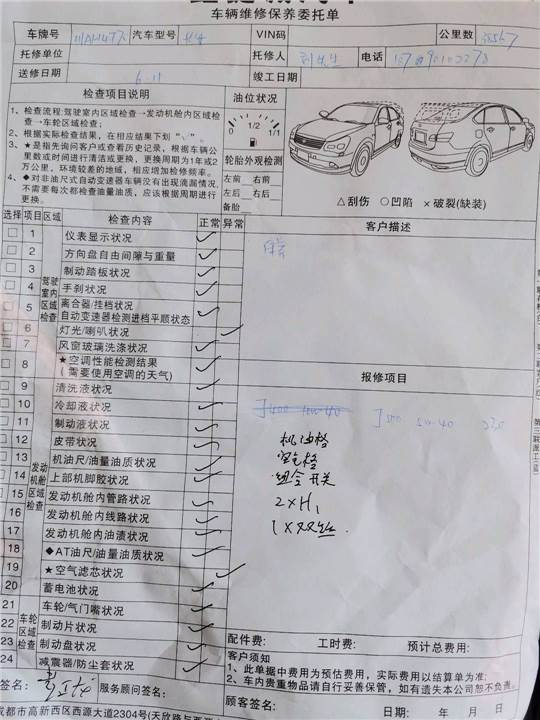 车辆维修保养委托单
车牌号 汽车型号 VIN码 公里数
托修单位 托修人 电话
送修日期 6.11 竣工日期
检查项目说明
1、检查流程:驾驶室内区域检查→发动机舱内区域检查→车轮区域检查;
2、根据实际检查结果，在相应结果下划“√”。
3、★是指先询问客户或查看历史记录，根据车辆公里数或时间进行清洁或更换，更换周期为1年或2万公里，环境较差的地域，相应增加检修频率。
4、◆对非油尺式自动变速器车辆没有出现滴漏情况,不需要每次都检查油量油质，应该根据周期进行更换。
油位状况
0 1/2 1/1
轮胎外观检测
左前 右前
左后 右后
备胎
△刮伤 ○凹陷 ×破裂(缺装)
选择 项目 区域 检查内容 正常 异常
客户描述
驾驶室内区域检查
1 仪表显示状况 ✓
2 方向盘自由间隙与重量 ✓
3 制动踏板状况 ✓
4 手刹状况 ✓
5 离合器/挂档状况
自动变速器检测进档平顺状态 ✓
6 灯光/喇叭状况 ✓
7 风窗玻璃洗涤状况 ✓
8 ★空调性能检测结果
(需要使用空调的天气) ✓
发动机舱区域检查
9 清洗液状况 ✓
10 冷却液状况 ✓
11 制动液状况 ✓
12 皮带状况 ✓
13 机油油尺/油量油质状况 ✓
14 上部机脚胶状况 ✓
15 发动机舱内管路状况 ✓
16 发动机舱内线路状况 ✓
17 发动机舱内油渍状况 ✓
18 ◆AT油尺/油量油质状况 ✓
19 ★空气滤芯状况 ✓
20 蓄电池状况 ✓
车轮区域检查
21 车轮/气门嘴状况 ✓
22 制动片状况 ✓
23 制动盘状况 ✓
24 减震器/防尘套状况 ✓
报修项目
5w-40
机油格
空气格
组合开关
2×H1
1×双丝
第三联派工(蓝)
配件费: 工时费: 预计总费用:
客户须知
1、此单据中费用为预估费用，实际费用以结算单为准;
2、车内贵重物品请自行妥善保管，如有遗失本公司恕不负责。
签名: 服务顾问签名:
顾客签名: 日期: 年 月 日
成都市高新西区西源大道2304号(天欣路与西源